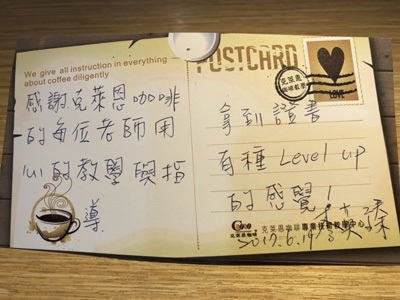 We give all instruction in everything
about coffee diligently
POSTCARD
感謝克萊恩咖啡
的每位老師用
心的教學與指
導
克萊恩
LOVE
拿到證書
有種 Level up
的感覺!
克萊恩咖啡專業技術教學中心
2017.6.19